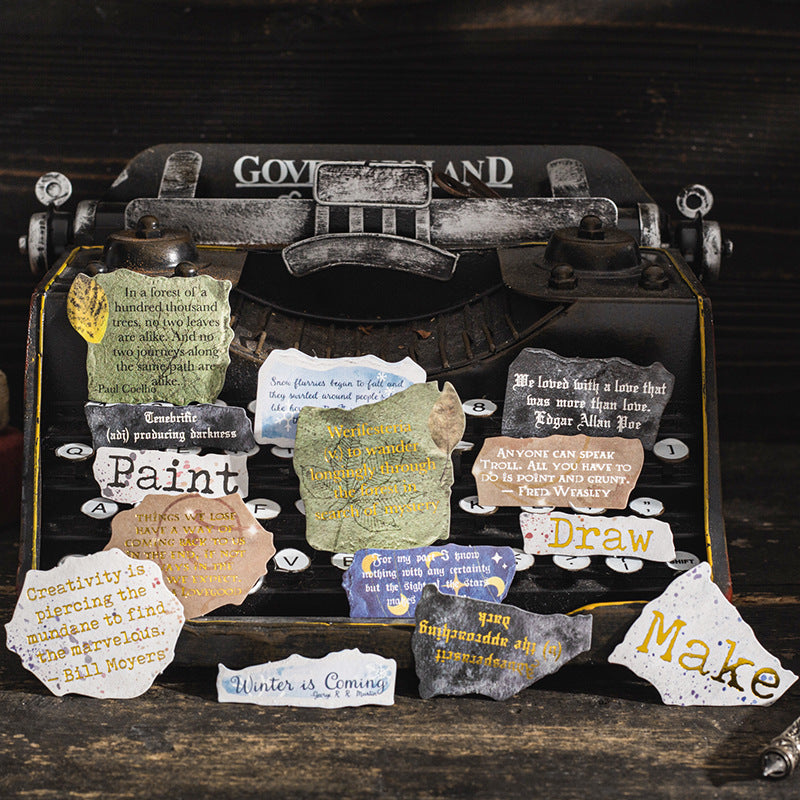 LAND
In a forest of a
hundred thousand
trees, no two leaves
are alike. And no
two journeys along
the same path are
alike.
-Paul Coelho
Snow flurries began to fall and
they swirled around people's
like
We loved with a love that
was more than love.
Edgar Allan Poe
Tenebrific
(adj) producing darkness
8
Werifesteria
(v) to wander
longingly through
the forest in
search of mystery
Q
Paint
Anyone can speak
Troll. All you have to
do is point and grunt.
— Fred Weasley
A
F
K
Things we lose
have a way of
coming back to us
in the end, if not
we expect.
Draw
V
For my part I know
nothing with any certainty
but the sight of the stars
makes
SHIFT
Creativity is
piercing the
mundane to find
the marvelous.
— Bill Moyers
(v) the approaching
dark
Make
Winter is Coming
George R. R. Martin